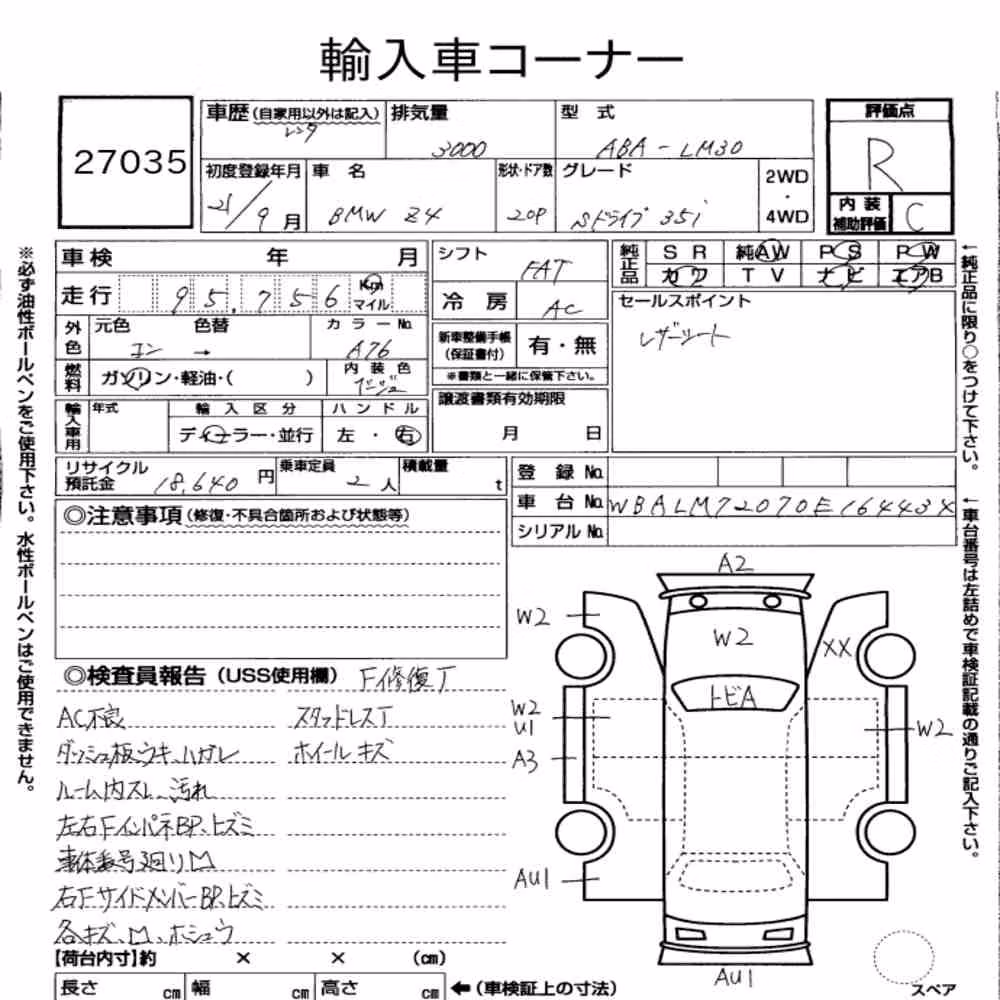 輸入車コーナー
27035
車歴(自家用以外は記入) 排気量 型式 評価点
レンタ 3000 ABA-LM30 R
初度登録年月 車名 形状・ドア数 グレード 2WD・4WD 内装補助評価
21/9月 BMW Z4 2OP Sドライブ 35i C
車検 年 月
走行 95,756 Km マイル
外色 元色 色替 カラーNo.
コン → A76
燃料 ガソリン・軽油・( ) 内装色
ベージュ
輸入車用 年式 輸入区分 ハンドル
ディーラー・並行 左・右
シフト FAT
冷房 AC
新車整備手帳(保証書付) 有・無
※書類と一緒に保管下さい。
譲渡書類有効期限
月 日
純正品 SR 純AW PS PW
カワ TV ナビ エアB
セールスポイント
レザーシート
リサイクル預託金 18,640円 乗車定員 2人 積載量 t
登録No.
車台No. WBALM72070E164434X
シリアルNo.
◎注意事項(修復・不具合箇所および状態等)
◎検査員報告(USS使用欄) F修復丁
AC不良 スタッドレス丁
ダッシュ板ウキ、ハガレ ホイールキズ
ルーム内スレ、汚れ
左右FインパネBP、ヒズミ
車体番号廻りM
右FサイドメンバーBP、ヒズミ
各キズ、M、ホシュウ
【荷台内寸】約 × × (cm)
長さ cm 幅 cm 高さ cm ←(車検証上の寸法)
A2
W2
W2
XX
トビA
W2
U1
W2
A3
AU1
AU1
スペア
※必ず油性ボールペンをご使用下さい。水性ボールペンはご使用できません。
←純正品に限り○をつけて下さい。
←車台番号は左詰めで車検証記載の通りご記入下さい。